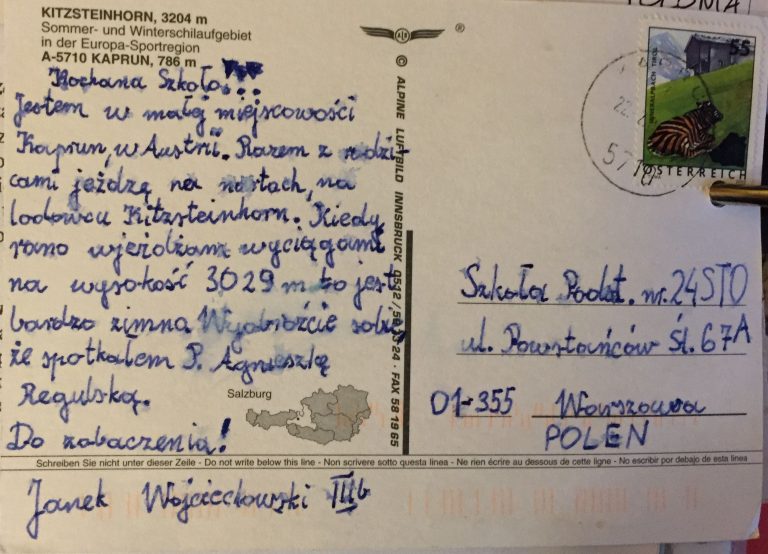 KITZSTEINHORN, 3204 m
Sommer- und Winterschilaufgebiet
in der Europa-Sportregion
A-5710 KAPRUN, 786 m
Kochana Szkoło...
Jestem w małej miejscowości
Kaprun, w Austrii. Razem z rodzi-
cami jeżdżę na nartach, na
lodowcu Kitzsteinhorn. Kiedy
rano wjeżdżam wyciągami
na wysokość 3029 m to jest
bardzo zimno. Wyobraźcie sobie,
że spotkałem P. Agnieszkę
Regulską.
Do zobaczenia!
Salzburg
© ALPINE LUFTBILD INNSBRUCK 0512/58 24 · FAX 58 19 65
®
55
ÖSTERREICH
5710
Szkoła Podst. nr. 24 STO
ul. Powstańców Śl. 67A
01-355 Warszawa
POLEN
Schreiben Sie nicht unter dieser Zeile - Do not write below this line - Non scrivere sotto questa linea - Ne rien écrire au dessous de cette ligne - No escribir por debajo de esta linea
Janek Wojciechowski IIIb